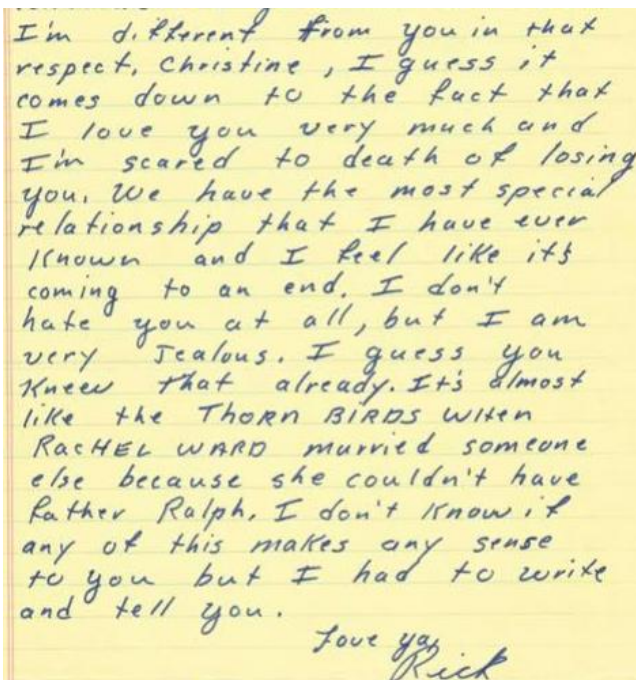 I'm different from you in that
respect, Christine, I guess it
comes down to the fact that
I love you very much and
I'm scared to death of losing
you. We have the most special
relationship that I have ever
known and I feel like it's
coming to an end. I don't
hate you at all, but I am
very Jealous. I guess you
Knew that already. It's almost
like the THORN BIRDS WHen
RacHEL WARD married someone
else because she couldn't have
Father Ralph. I don't know if
any of this makes any sense
to you but I had to write
and tell you.
Love ya,
Rick